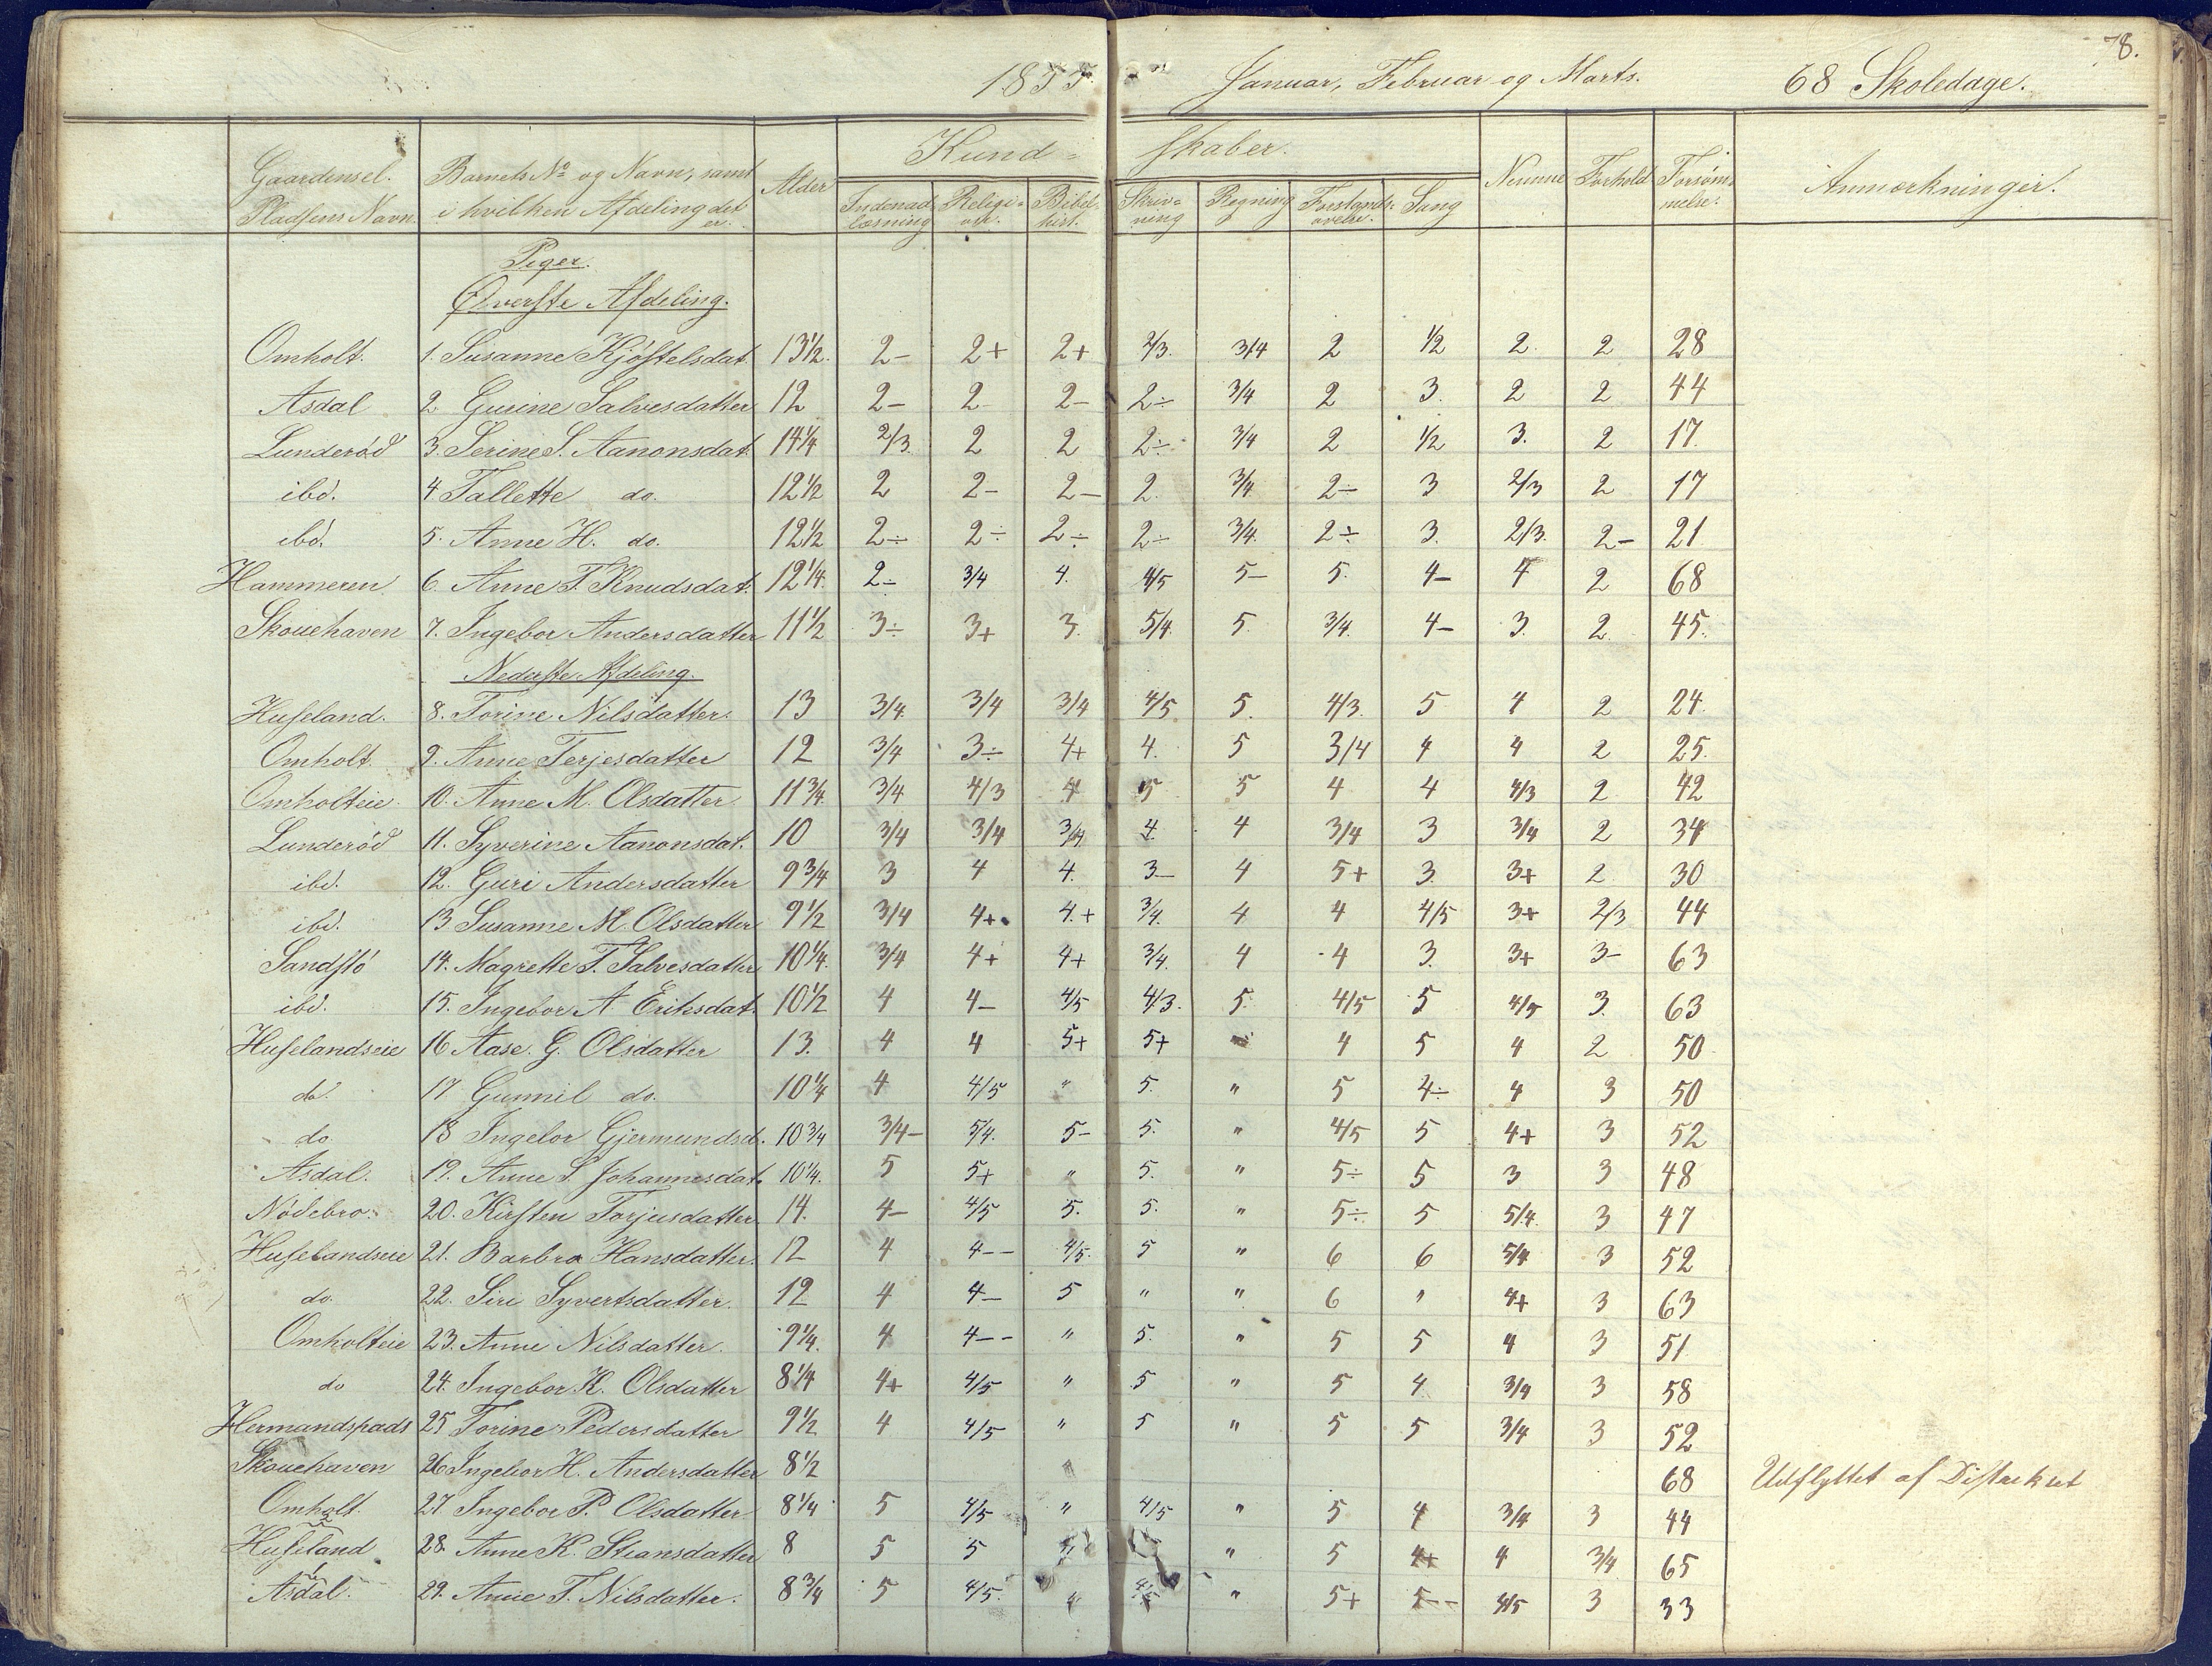 78.
1855 Januar, Februar og Marts. 68 Skoledage.
Gaardens el. Pladsens Navn | Barnets No og Navn, samt i hvilken Afdeling det er. | Alder | Kundskaber. | Nemme | Forhold | Forsømmelse. | Anmærkninger.
Indenadlæsning | Religion. | Bibelhist. | Skrivning | Regning | Forstandsøvelse. | Sang
Piger.
Øverste Afdeling.
Omholt. 1. Susanne Kjøstelsdat. 13½. 2- 2+ 2+ 2/3. 3/4 2 1/2 2. 2 28
Asdal 2 Gurine Salvesdatter 12 2- 2 2- 2÷ 3/4 2 3. 2 2 44
Lunderød 3. Serine S. Aanonsdat. 14¼ 2/3 2 2 2÷ 3/4 2 1/2 3. 2 17.
ibd. 4 Tallette do. 12½ 2 2- 2- 2. 3/4 2- 3 2/3 2 17
ibd. 5. Anne H. do. 12½ 2÷ 2÷ 2÷ 2÷ 3/4. 2÷ 3. 2/3. 2- 21
Hammeren. 6. Anne T. Knudsdat. 12¼. 2÷ 3/4 4. 4/5 5- 5. 4- 4 2 68
Skouehaven 7. Ingebor Andersdatter 11½ 3÷ 3+ 3. 5/4. 5. 3/4. 4- 3. 2. 45.
Nederste Afdeling.
Huseland. 8. Torine Nilsdatter. 13 3/4. 3/4 3/4 4/5 5. 4/3. 5 4 2 24
Omholt. 9. Anne Terjesdatter 12 3/4 3÷ 4+ 4. 5 3/4 4 4 2 25.
Omholteie. 10. Anne M. Olsdatter 11¾. 3/4 4/3 4 5 5 4 4 4/3 2 42
Lunderød 11. Syverine Aanonsdat. 10 3/4 3/4 3/4 4. 4 3/4 3 3/4 2 34
ibd. 12. Guri Andersdatter 9¾ 3 4 4. 3- 4 5+ 3. 3+ 2 30
ibd. 13 Susanne M. Olsdatter 9½ 3/4 4+ 4.+ 3/4. 4 4 4/5 3+ 2/3 44
Sandstö 14. Magrette T. Salvesdatter 10¼. 3/4 4+ 4+ 3/4. 4 4 3. 3+ 3- 63
ibd. 15. Ingebor A. Eriksdat. 10½ 4 4- 4/5 4/3. 5. 4/5 5 4/5 3. 63
Huselandseie 16 Aase. G. Olsdatter 13. 4 4 5+ 5+ 4 5 4 2 50
do. 17 Gunnil do. 10¼ 4 4/5 " 5. " 5 4÷ 4 3 50
do. 18 Ingebor Gjermundsd. 10¾ 3/4- 5/4. 5- 5. " 4/5 5 4+ 3 52
Asdal. 19. Anne S. Johannesdat. 10¼. 5 5+ " 5. " 5÷ 5 3 3 48
Nödebro. 20. Kirsten Torjusdatter. 14. 4- 4/5 5. 5. " 5÷ 5 5/4. 3 47
Huselandseie 21. Barbra Hansdatter. 12 4 4-- 4/5. 5 " 6 6 5/4 3 52
do. 22. Siri Syvertsdatter. 12 4 4- 5 " " 6 " 4+ 3 63
Omholteie 23. Anne Nilsdatter. 9¼. 4 4-- " 5. " 5 5 4 3 51
do 24. Ingebor K. Olsdatter 8¼ 4+ 4/5 " 5 " 5 4 3/4 3 58
Hermandspads 25 Torine Pedersdatter 9½ 4 4/5 " 5 " 5 5 3/4 3 52
Skouehaven 26 Ingebor H. Andersdatter 8½ 68 Udflyttet af Distriktet
Omholt. 27. Ingebor P. Olsdatter 8¼ 5 4/5 " 4/5 " 5 4 3/4 3 44
Huseland 28. Anne K. Stiansdatter 8 5 5 " 5 4+ 4 3/4 65
Asdal. 29. Anne T. Nilsdatter. 8¾ 5 4/5. " 4/5 " 5+ 5-- 4/5 3 33